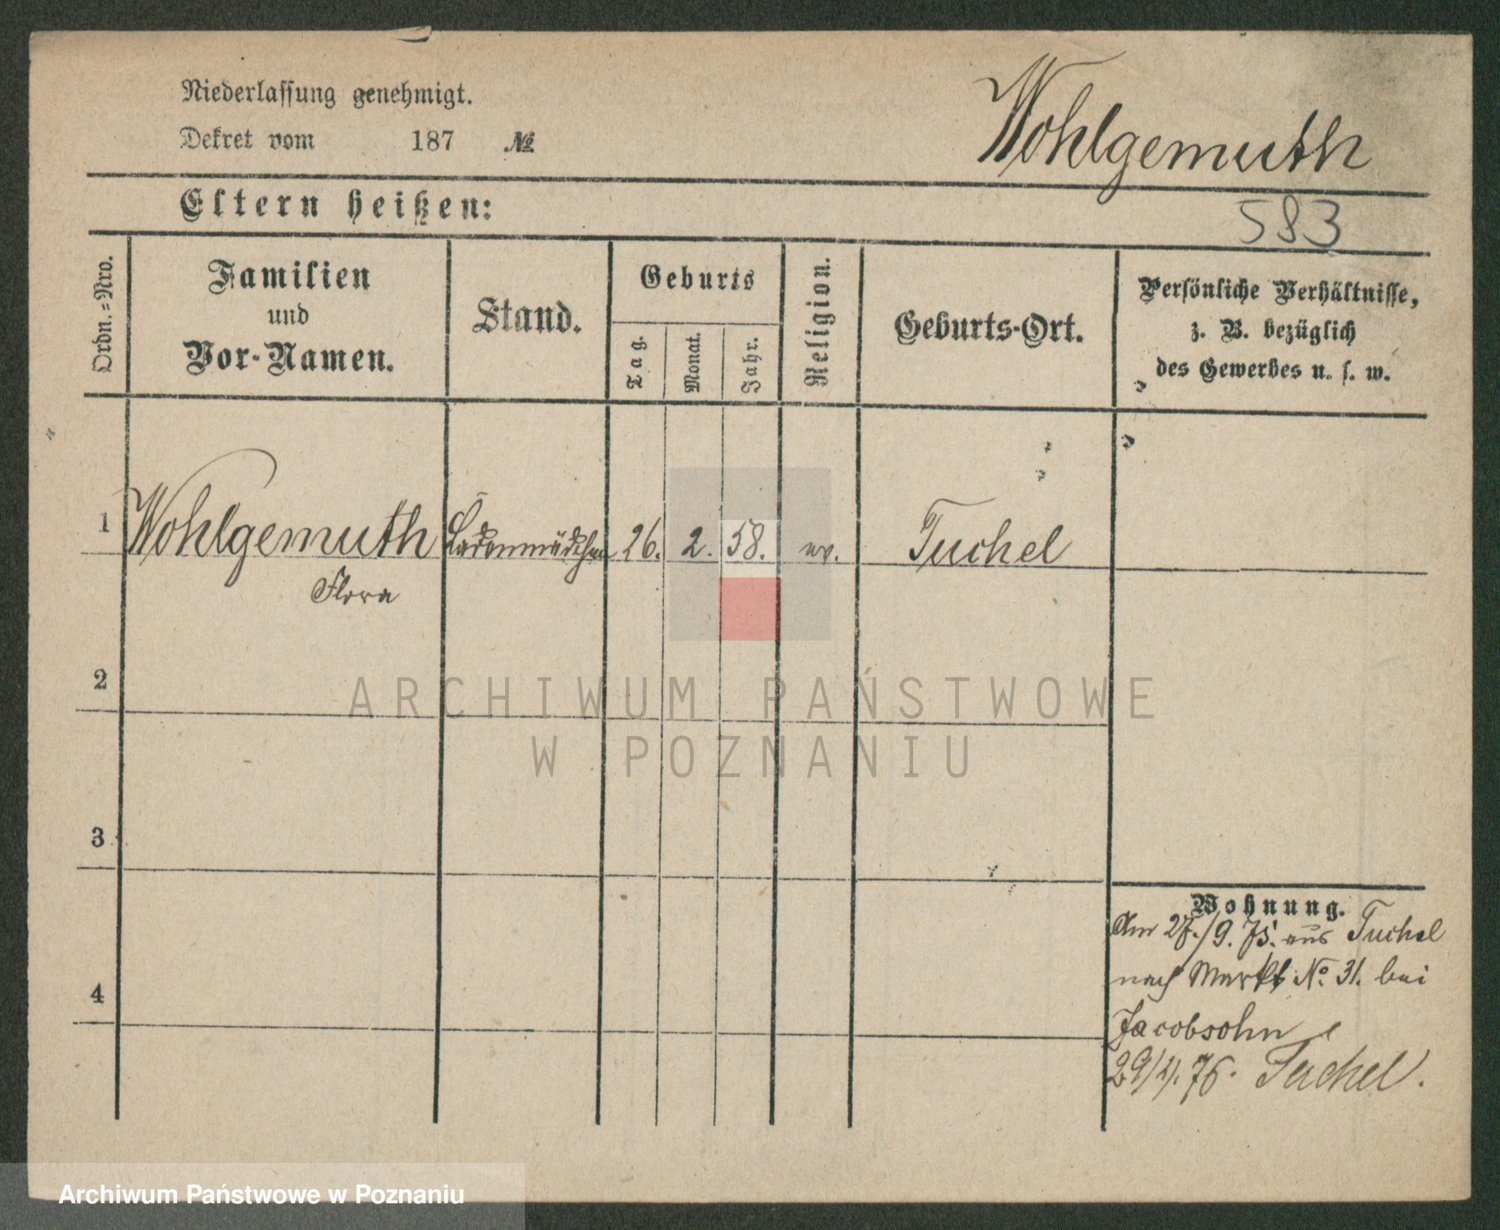 Niederlassung genehmigt.
Dekret vom 187 №
Wohlgemuth
Eltern heißen:
583
Ordn.=Nro.
Familien
und
Vor-Namen.
Stand.
Geburts
Tag.
Monat.
Jahr.
Religion.
Geburts-Ort.
Persönliche Verhältnisse,
z. B. bezüglich
des Gewerbes u. s. w.
1 Wohlgemuth Ladenmädchen 26. 2. 58. ev. Tuchel
Flora
2
ARCHIWUM PAŃSTWOWE
W POZNANIU
3
Wohnung.
Am 27./9. 75. aus Tuchel
nach Markt No. 31. bei
4
Jacobsohn
76. Tuchel.
Archiwum Państwowe w Poznaniu